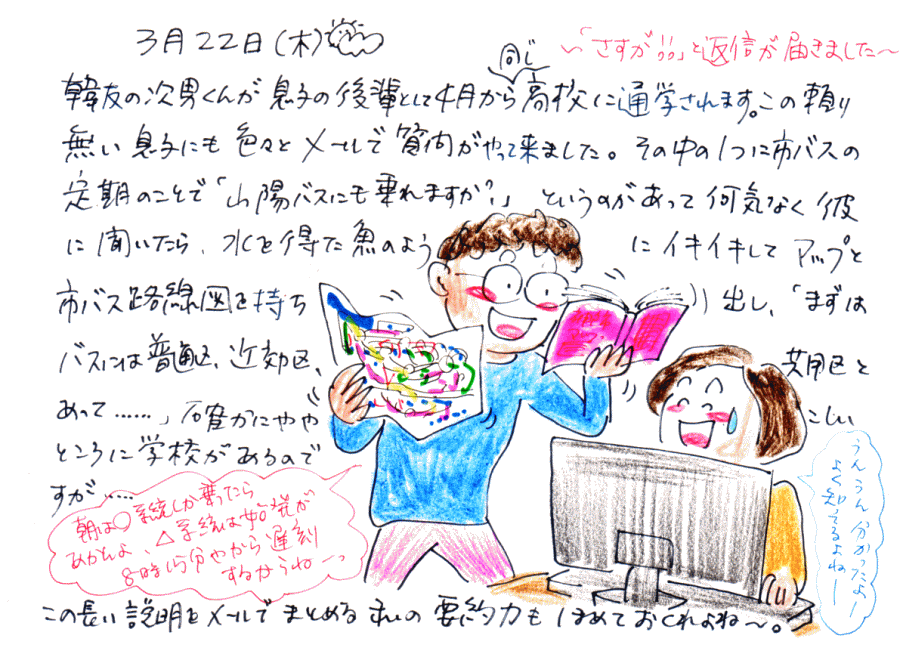 3月22日(木)
〜「さすが!!」と返信が届きました〜
同じ
韓友の次男くんが息子の後輩として4月から高校に通学されます。この頼り
無い息子にも色々とメールで質問がやって来ました。その中の1つに市バスの
定期のことで「山陽バスにも乗れますか?」というのがあって何気なく彼
に聞いたら、水を得た魚のようにイキイキしてマップと
市バス路線図を持ち出し、「まずは
バスには普通区、近郊区、共用区と
あって……」確かにややこしい
ところに学校があるので
すが……
朝は○系統しか乗ったら
あかんよ、△系統は始発が
8時15分やから遅刻
するからねーっ
うんうん分かったよー
よく知ってるよねー
この長い説明をメールでまとめる私の要約力もほめておくれよね〜。